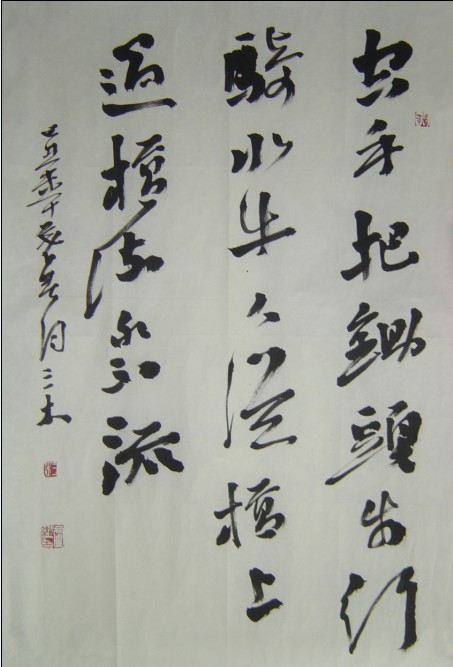 空手把鋤頭步行
騎水牛人從橋上
過橋流水不流
己丑 三木